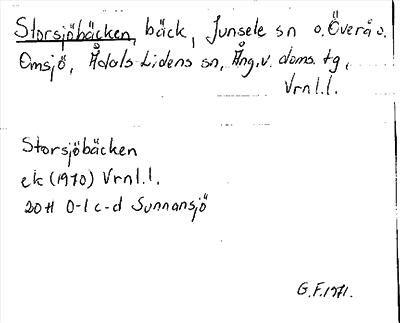 Storsjöbäcken, bäck, Junsele sn o. Överå o.
Omsjö, Ådals-Lidens sn, Ång. v. doms. tg,
Vrnl.l.
Storsjöbäcken
ek (1970) Vrnl.l.
20H 0-1 c-d Sunnansjö
G.F. 1971.